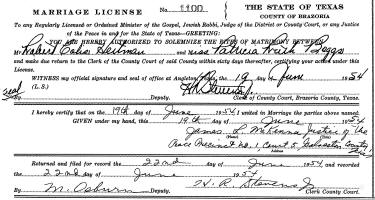 MARRIAGE LICENSE 1100 THE STATE OF TEXAS
COUNTY OF BRAZORIA
To any Regularly Licensed or Ordained Minister of the Gospel, Jewish Rabbi, Judge of the District or County Court, or any Justice
of the Peace in and for the State of Texas—GREETING:
YOU ARE HEREBY AUTHORIZED TO SOLEMNIZE THE RITES OF MATRIMONY BETWEEN
Mr. Robert and Miss Patricia
and make due return to the Clerk of the County Court of said County within sixty days thereafter, certifying your action under this
License.
WITNESS my official signature and seal of office at Angleton, 19 of June 1954
seal (L. S.) H. R. Stevens Jr.
Clerk of County Court, Brazoria County, Texas.
I hereby certify that on the 19th day of June 1954, I united in Marriage the parties above named.
GIVEN under my hand, this 19th day of June 1954
James L. McKenna Justice of the
Peace Precinct No. 1, Galveston County
Returned and filed for record the 22nd day of June 1954, and recorded
the 22nd day of June 1954
By M. Osburn H. R. Stevens Jr
Clerk County Court.